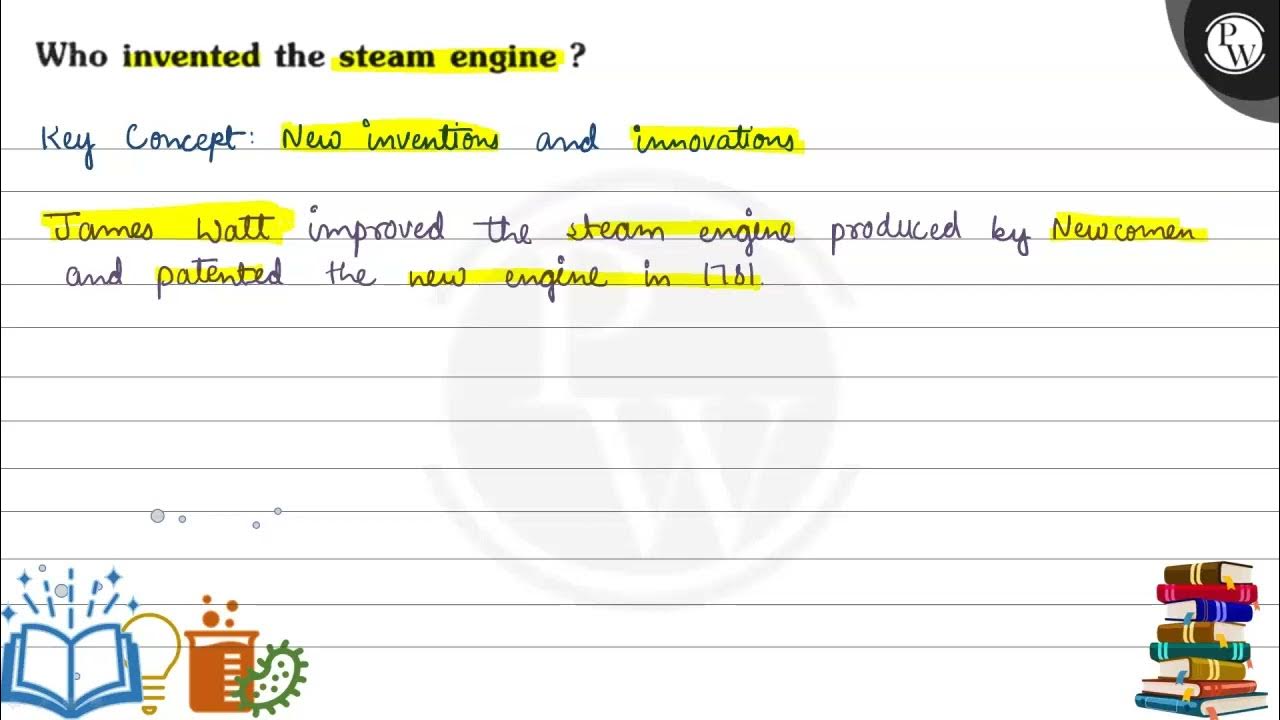 Who invented the steam engine ?
PW
Key Concept: New inventions and innovations
James Watt improved the steam engine produced by Newcomen
and patented the new engine in 1781.
PW